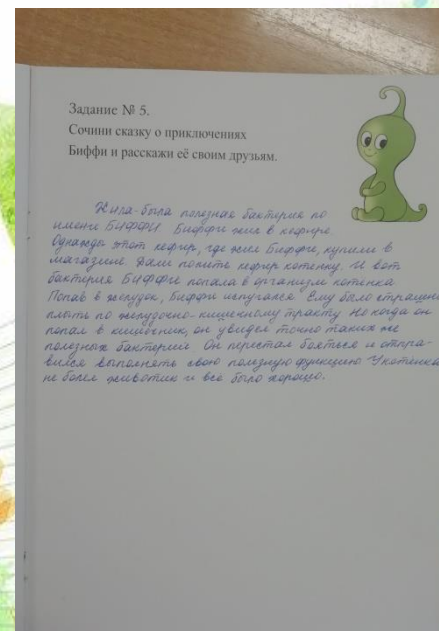 Задание № 5.
Сочини сказку о приключениях
Биффи и расскажи её своим друзьям.
Жила-была полезная бактерия по
имени БИФФИ. Биффи жил в кефире.
Однажды этот кефир, где жил Биффи, купили в
магазине Дали попить кефир котенку. И вот
бактерия БИФФИ попала в организм котенка
Попав в желудок, Биффи испугался Ему было страшно
плыть по желудочно-кишечному тракту Но когда он
попал в кишечник, он увидел точно таких же
полезных бактерий Он перестал бояться и отпра-
вился выполнять свою полезную функцию У котенка
не болел животик и все было хорошо.